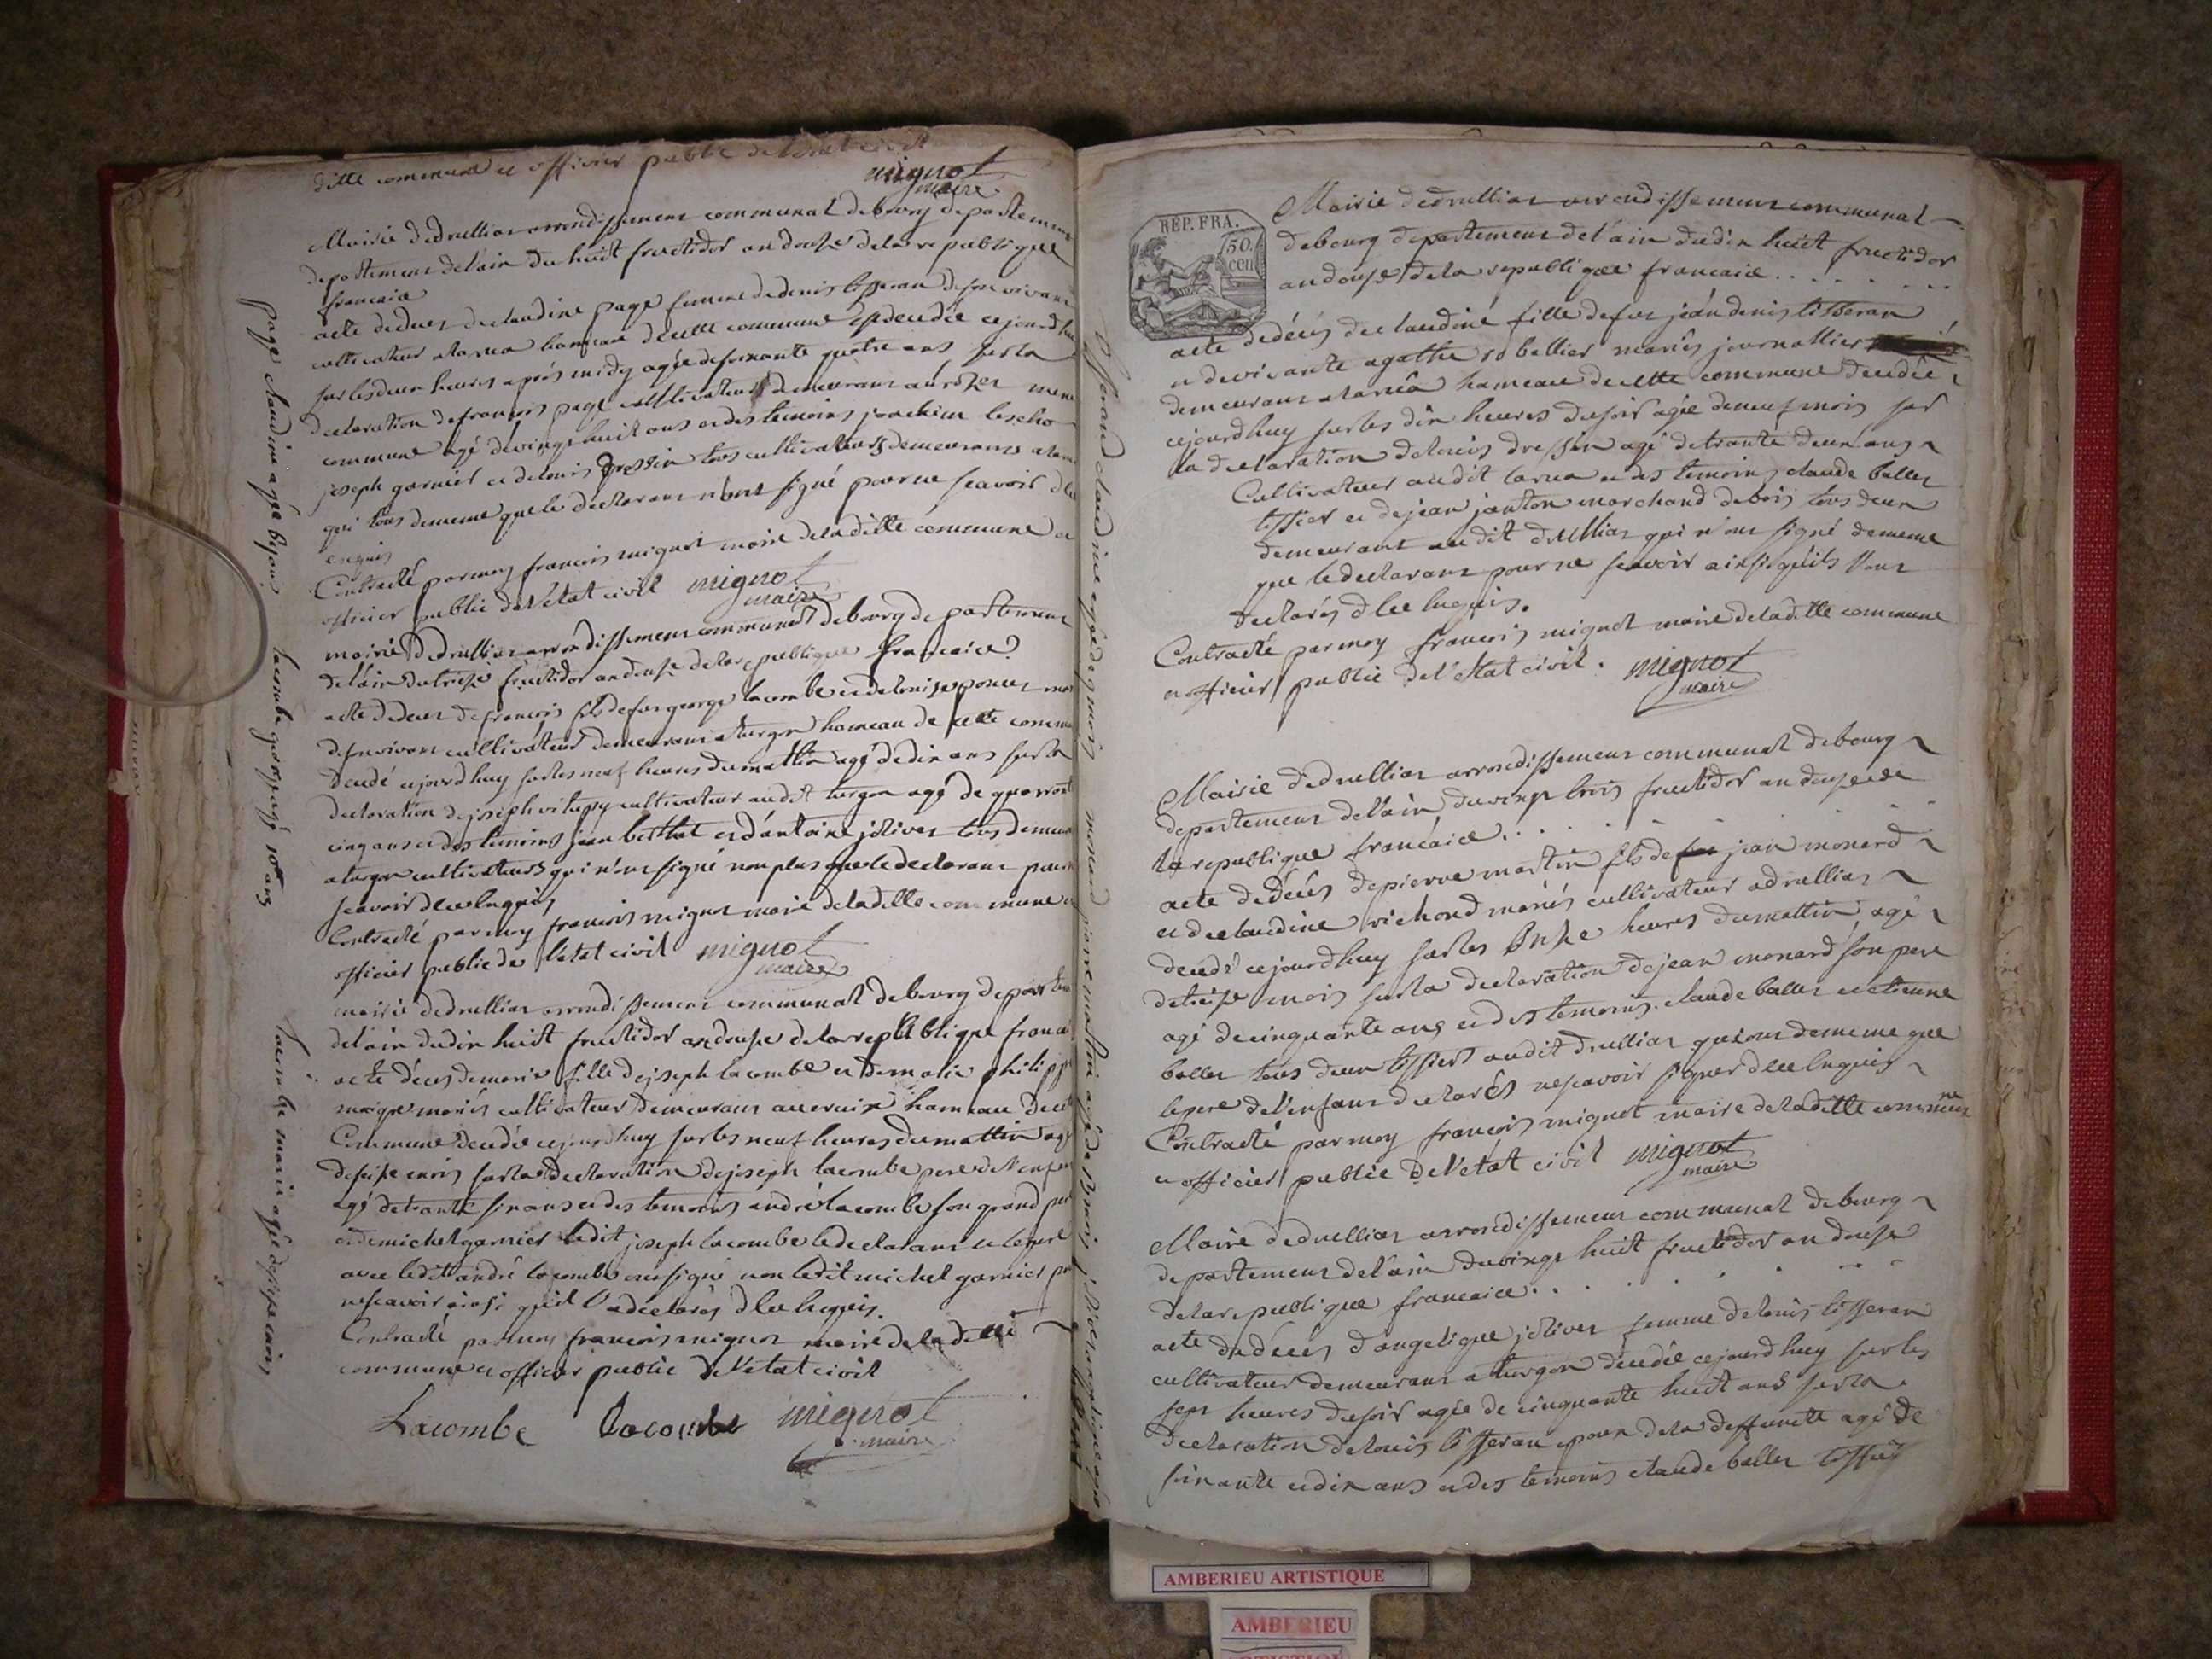 ditte commune et officier public de l'etat civil
mignot
maire
Mairie de drullias arrondissement communal de bourg departement
departement de l'ain du huit fructidor an douse de la republique
francaice
acte de deces de claudine page femme de denis tisseran de son vivant
cultivateur a larua hameau de cette commune decedée cejourdhuy
sur les deux heures aprés midy agée de soixante quatre ans sur la
declaration de francois page cultivateur demeurant au meme
commune agé de vingt huit ans et des temoins joachim
joseph garnier et de louis dressin tous cultivateurs demeurants a larua
qui tous de meme que le declarant n'ont signé pour ne scavoir d'ce
enquis
Contracté par moy francois mignot maire de la ditte commune et
officier public de l'etat civil mignot
maire
mairie de drullias arrondissement communal de bourg departement
de l'ain du treise fructidor an douse de la republique francaice
acte de deces de francois fils de feu george lacombe et de louise poncet
de son vivant cultivateur demeurant a turgon hameau de cette commune
decedé cejourdhuy sur les neuf heures du mattin agé de dix ans sur la
declaration de joseph cultivateur au dit turgon agé de quarante
cinq ans et des temoins jean berthet et d'antoine jolivet tous demeurant
a turgon cultivateurs qui n'ont signé non plus que le declarant pour ne
scavoir d'ce enquis
Contracté par moy francois mignot maire de la ditte commune et
officier public de l'etat civil mignot
maire
mairie de drullias arrondissement communal de bourg departement
de l'ain du dix huit fructidor an douse de la republique francai
acte deces de marie fille de joseph lacombe et de marie philippe
maigre mariés cultivateur demeurant au hameau de cette
Commune decedée cejourdhuy sur les neuf heures du mattin agé
de seise mois sur la declaration de joseph lacombe pere de l'enfant
agé de trante six ans et des temoins andré lacombe son grand pere
et de michel garnier ledit joseph lacombe le declarant et le pere
avec le dit andré lacombe ont signé non le dit michel garnier pour
ne scavoir ainsi qu'il l'a declarés d'ce enquis.
Contracté par moy francois mignot maire de la ditte
commune et officier public de l'etat civil
Lacombe Lacombe mignot
maire
page claudine agée
lacombe george agé 10 ans
lacombe marie agée de seise mois
RÉP. FRA.
50.
cen
Mairie de drullias arrondissement communal
de bourg departement de l'ain du dix huit fructidor
an douse de la republique francaice
acte de décés de claudine fille de feu jean denis tisseran
et de vivante agathe robellier mariés journallier
demeurant a larua hameau de cette commune decedée
cejourdhuy sur les dix heures du soir agée de neuf mois sur
la declaration de louis dressin agé de trante deux ans
Cultivateur au dit larua et des temoins claude ballet
tissier et de jean janton marchand de bois tous deux
demeurant au dit drullias qui n'ont signé de meme
que le declarant pour ne scavoir ainsi qu'ils l'ont
declarés d'ce enquis.
Contracté par moy francois mignot maire de la ditte commune
et officier public de l'etat civil. mignot
maire
Mairie de drullias arrondissement communal de bourg
departement de l'ain du vingt trois fructidor an douse de
la republique francaice
acte de décés de pierre martin fils de jean monard
et de claudine richond mariés cultivateur a drullias
decedé cejourdhuy sur les onse heures du mattin agé
de treise mois sur la declaration de jean monard son pere
agé de cinquante ans et des temoins claude ballet et etienne
ballet tous deux tissiers au dit drullias qui ont de meme que
le pere de l'enfant declarés ne scavoir signer d'ce enquis
Contracté par moy francois mignot maire de la ditte commune
et officier public de l'etat civil mignot
maire
Mairie de drullias arrondissement communal de bourg
departement de l'ain du vingt huit fructidor an douse
de la republique francaice
acte de décés d'angelique jolivet femme de louis tisseran
cultivateur demeurant a turgon decedée cejourdhuy sur les
sept heures du soir agée de cinquante huit ans sur la
declaration de louis tisseran epoux de la deffuncte agé de
soixante et dix ans et des temoins claude ballet tissier
tisseran claudine agée de 9 mois
monard pierre martin agé de 13 mois
AMBERIEU ARTISTIQUE
AMBERIEU